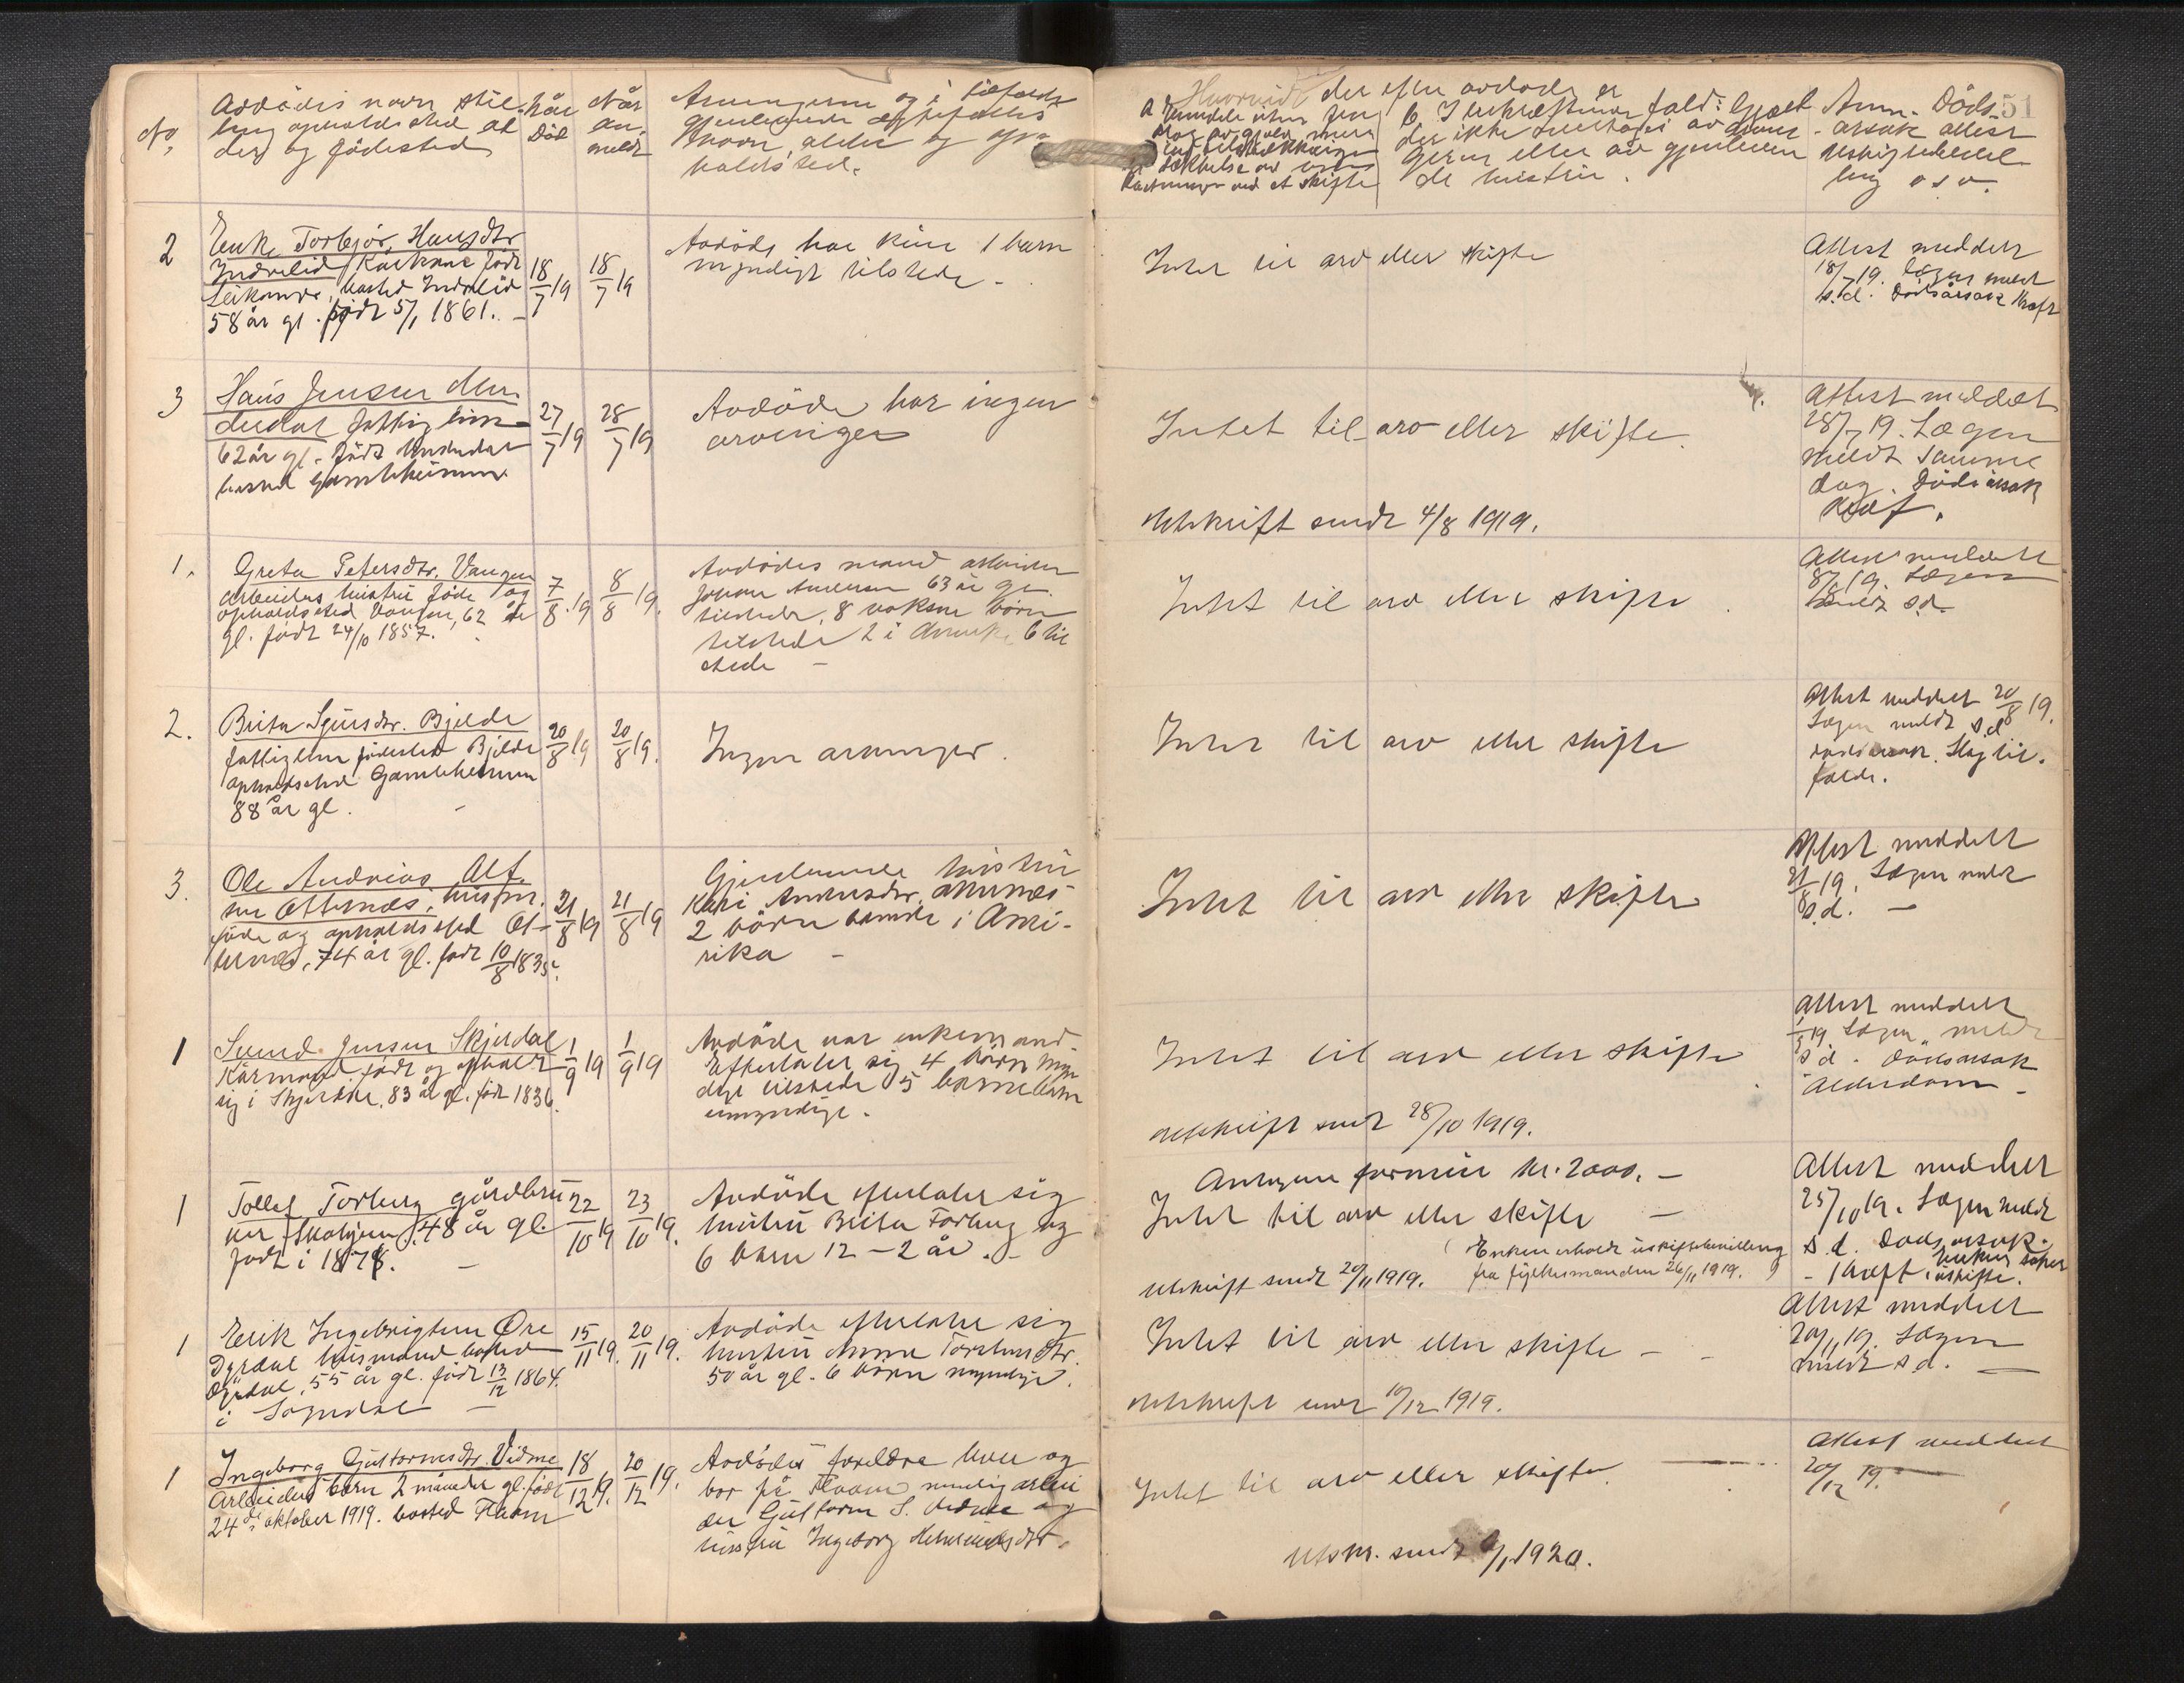 No.
Avdödes navn stil-
ling opholdssted al
der og födested
Når
Död
Når
an-
meldt
Arvingerne og i tilfælde
gjenlevende ægtefælles
navn, alder og op-
holdssted.
Hvorvidt der efter avdöde er
b. I bekræftende fald: Gjælet
der ikke overtages av arvin-
gerne eller av gjenleven
de hustru.
Anm. Döds-
årsak attest
uskiftebevil-
ling o s v.
51
2
Enke Torbjör Hansdtr
Indrelid, Kårkone född
Leikanger, bosted Indrelid
58 år gl. född 5/1 1861. -
18/7 19
18/7 19
Avdöde har kun 1 barn
myndigt tilstede -
Intet til arv eller skifte
Attest meddelt
18/7 19. Lægen meldt
s.d. Dödsårsak Kræft
3
Hans Jensen Mun-
dedal fattiglem
62 år gl. född Undredal
bosted Gamleheimen.
27/7 19
28/7 19
Avdöde har ingen
arvinger
Intet til arv eller skifte.
Utskrift sendt 4/8 1919.
Attest meddelt
28/7 19. Lægen
meldt samme
dag. Dödsårsak
Kræft.
1.
Greta Petersdtr. Vangen
arbeiders hustru född og
opholdssted Vangen, 62 år
gl. född 24/10 1857.
7/8 19
8/8 19.
Avdödes mand arbeider
Johan Andersen 63 år gl.
tilstede, 8 voksne börn
tilstede 2 i Amerika 6 til
stede -
Intet til arv eller skifte.
Attest meddelt
8/8 19. Lægen
meldt s.d.
2.
Brita Sjursdtr. Bjelde
fattiglem födested Bjelde
opholdssted Gamleheimen
88 år gl. -
20/8 19
20/8 19.
Ingen arvinger.
Intet til arv eller skifte
Attest meddelt 20/8 19.
Lægen meldt s.d
dödsårsak. Slagtil-
fælde.
3.
Ole Andreas Alf-
sen Otternes, husm.
född og opholdssted Ot-
ternes, 74 år gl. född 10/8 1835.
21/8 19
21/8 19
Gjenlevende hustru
Kari Andersdtr. Otternes
2 börn boende i Ame-
rika -
Intet til arv eller skifte
Attest meddelt
21/8 19. Lægen meldt
s.d. -
1
Svend Jensen Skjerdal
Kårmand född og opholdt
sig i Skjerdal. 83 år gl. född 1836.
1/9 19
1/9 19
Avdöde var enkemand.
Efterlater sig 4 börn myn
dige tilstede 5 barnebarn
umyndige.
Intet til arv eller skifte.
Utskrift sendt 28/10 1919.
Attest meddelt
1/9 19 Lægen meldt
s d. Dödsårsak
Alderdom -
1
Tollef Torberg gårdbru
ker, Skaltjern, 48 år gl
född i 1871. -
22/10 19
23/10 19.
Avdöde efterlater sig
hustru Brita Torberg og
6 barn 12 - 2 år. -
Antagen formue kr. 2000. -
Intet til arv eller skifte -
Enken erholdt uskiftebevilling
fra fylkesmanden 26/11 1919.
Utskrift sendt 20/11 1919.
Attest meddelt
25/10 19. Lægen meldt
s. d. Dödsårsak.
- Kræft. Enken söker
uskifte.
1
Erik Ingebrigtsen Öre
Dyrdal husmand bosted
Dyrdal, 55 år gl. född 13/12 1864.
i Sogndal -
15/11 19.
20/11 19.
Avdöde efterlater sig
hustru Anna Torstensdtr.
50 år gl. 6 börn myndige.
Intet til arv eller skifte - -
Utskrift sendt 10/12 1919.
Attest meddelt
20/11 19. Lægen
meldt s.d. -
1
Ingeborg Guttormsdtr. Vidme
Arbeiders barn 2 måneder gl. född
24de oktober 1919. bosted Flaam
18/12 19.
20/12 19.
Avdödes foreldre lever og
bor på Flaam nemlig arbei
der Guttorm S. Vidme og
hustru Ingeborg
Intet til arv eller skifte.
Utskr. sendt 1920.
Attest meddelt
20/12 19.